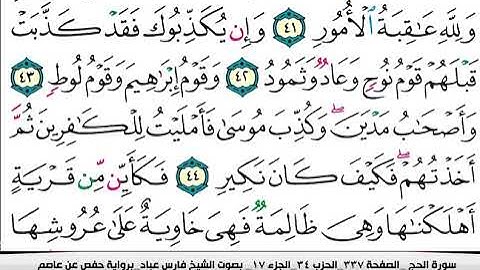 وَلِلَّهِ عَاقِبَةُ الْأُمُورِ ٤١ وَإِن يُكَذِّبُوكَ فَقَدْ كَذَّبَتْ
قَبْلَهُمْ قَوْمُ نُوحٍ وَعَادٌ وَثَمُودُ ٤٢ وَقَوْمُ إِبْرَاهِيمَ وَقَوْمُ لُوطٍ ٤٣
وَأَصْحَابُ مَدْيَنَ ۖ وَكُذِّبَ مُوسَىٰ فَأَمْلَيْتُ لِلْكَافِرِينَ ثُمَّ
أَخَذْتُهُمْ ۖ فَكَيْفَ كَانَ نَكِيرِ ٤٤ فَكَأَيِّن مِّن قَرْيَةٍ
أَهْلَكْنَاهَا وَهِيَ ظَالِمَةٌ فَهِيَ خَاوِيَةٌ عَلَىٰ عُرُوشِهَا
سورة الحج _ الصفحة ٣٣٧ _ الحزب ٣٤ _ الجزء ١٧ _ بصوت الشيخ فارس عباد _ برواية حفص عن عاصم